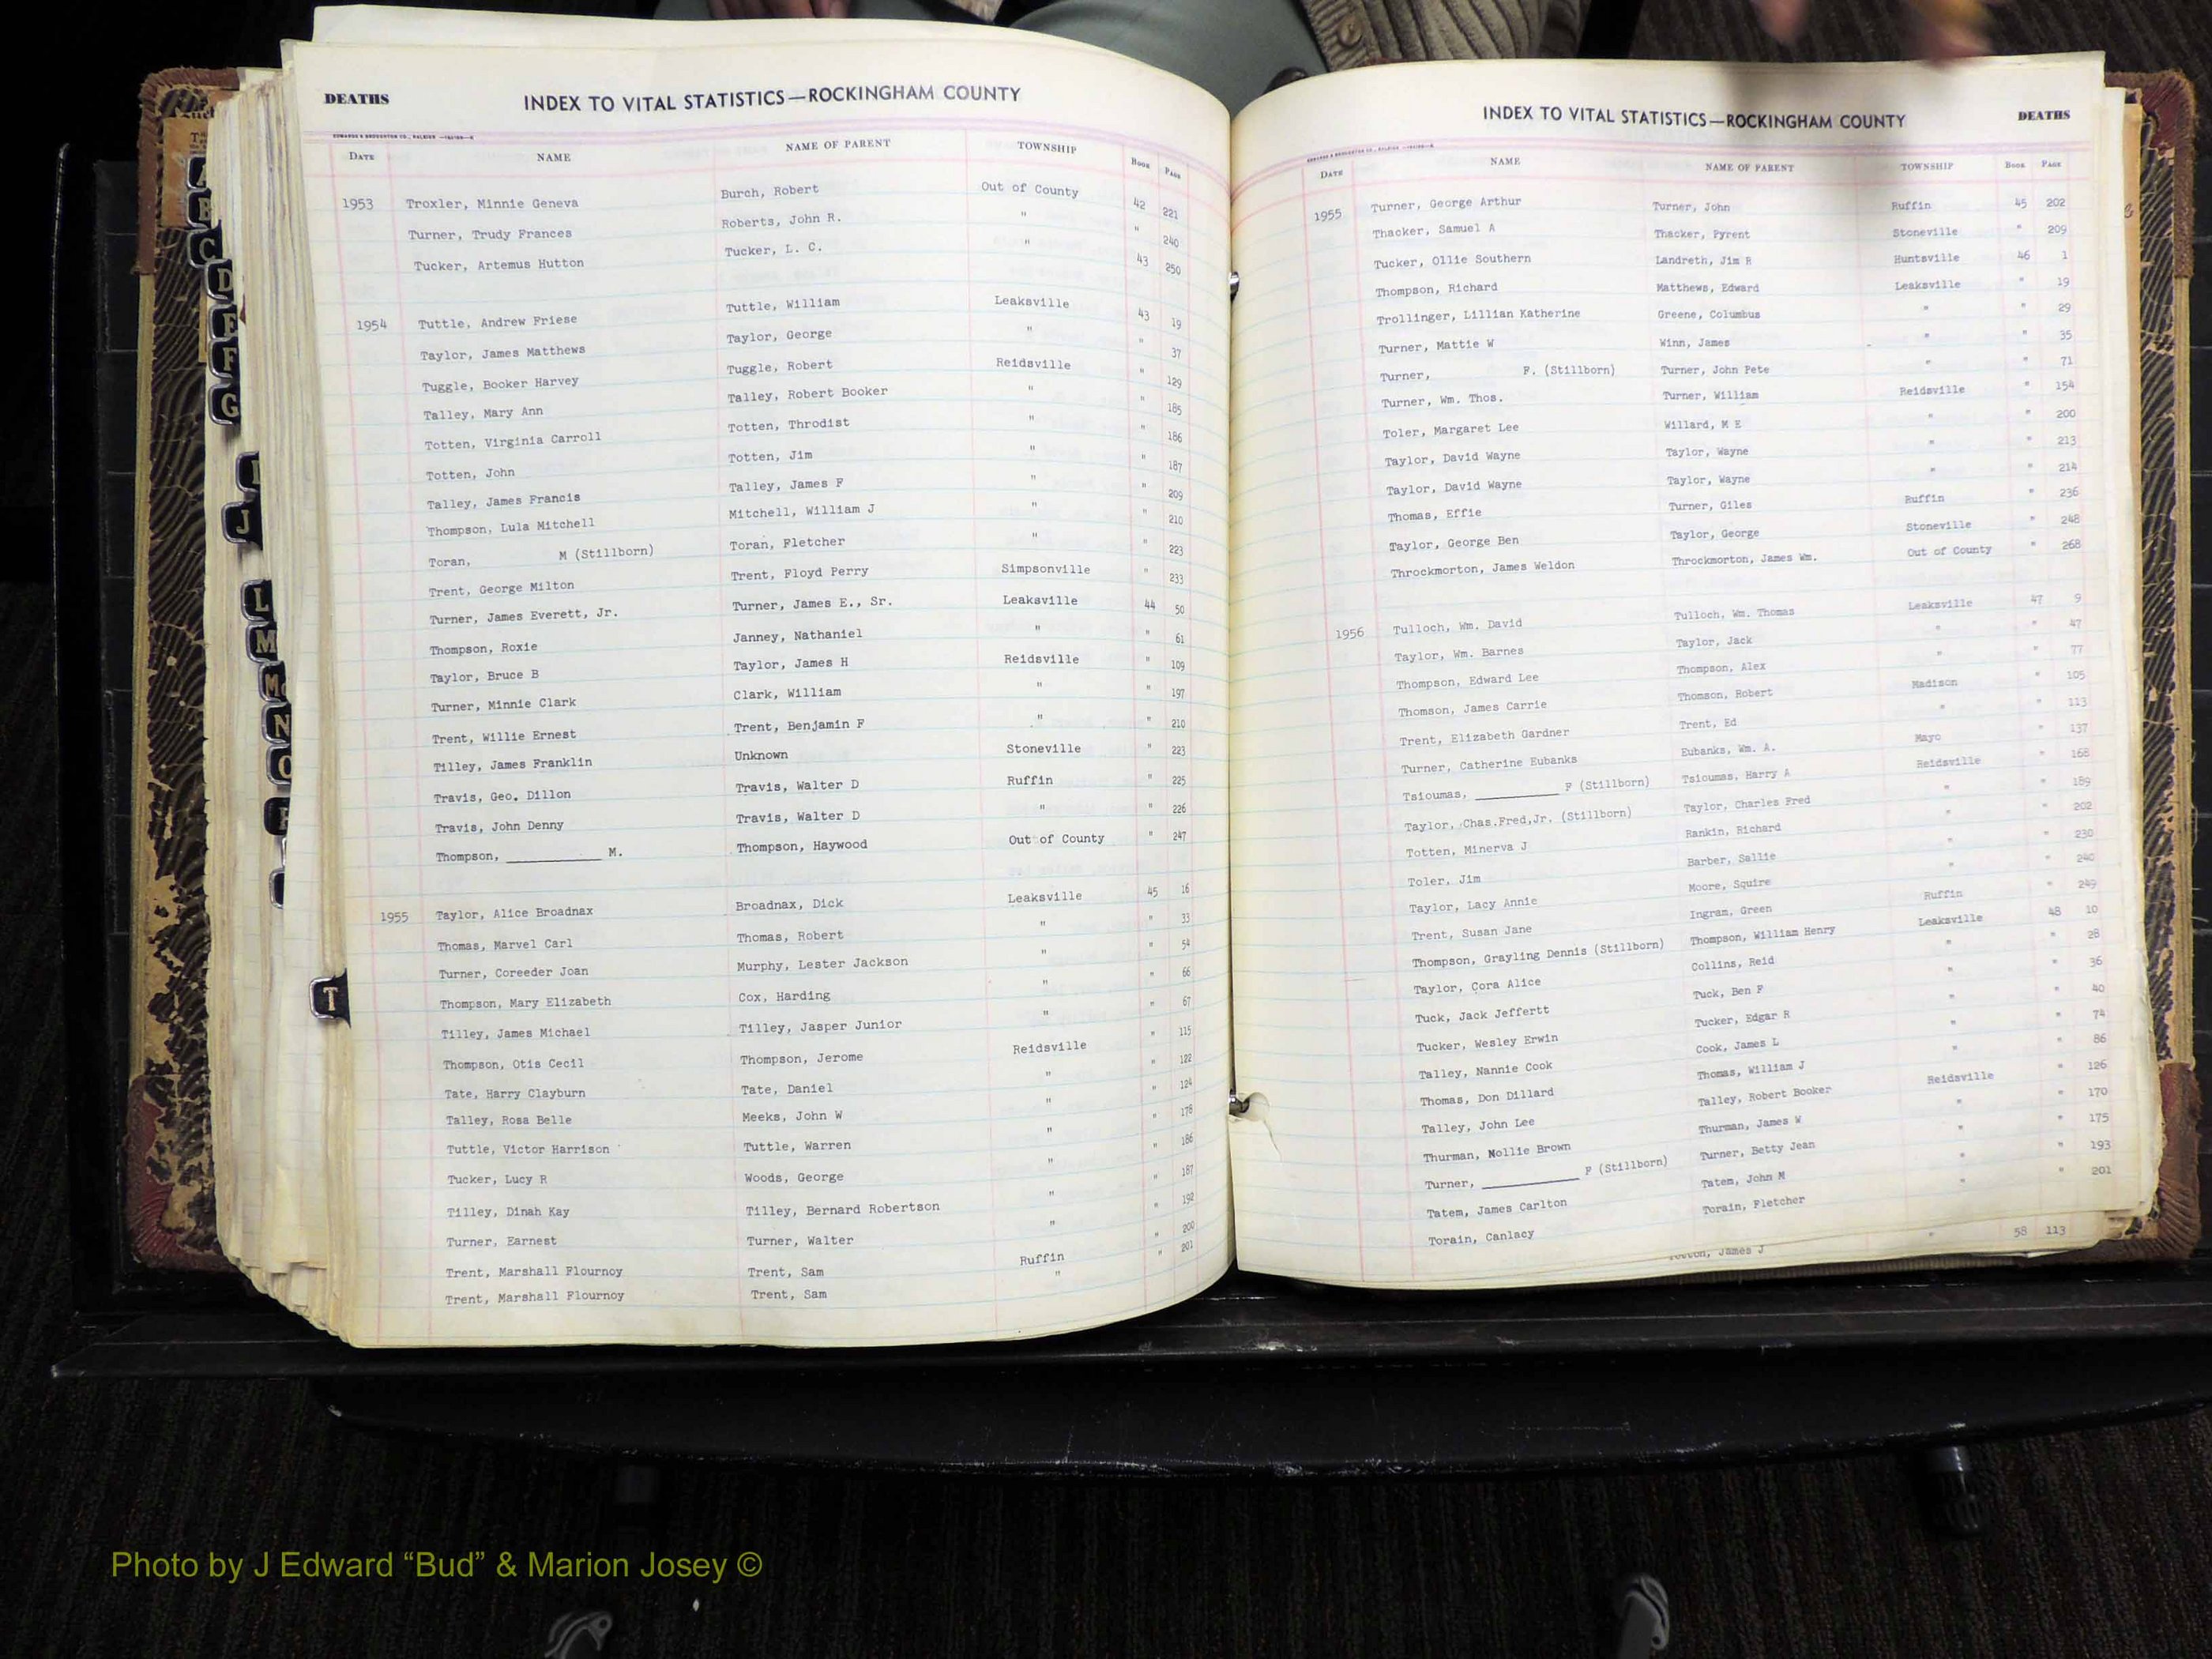 DEATHS INDEX TO VITAL STATISTICS—ROCKINGHAM COUNTY
DATE NAME NAME OF PARENT TOWNSHIP BOOK PAGE
1953 Troxler, Minnie Geneva Burch, Robert Out of County 42 221
Turner, Trudy Frances Roberts, John R. " " 240
Tucker, Artemus Hutton Tucker, L. C. " 43 250
1954 Tuttle, Andrew Friese Tuttle, William Leaksville 43 19
Taylor, James Matthews Taylor, George " " 37
Tuggle, Booker Harvey Tuggle, Robert Reidsville " 129
Talley, Mary Ann Talley, Robert Booker " " 185
Totten, Virginia Carroll Totten, Throdist " " 186
Totten, John Totten, Jim " " 187
Talley, James Francis Talley, James F " " 209
Thompson, Lula Mitchell Mitchell, William J " " 210
Toran, M (Stillborn) Toran, Fletcher " " 223
Trent, George Milton Trent, Floyd Perry Simpsonville " 233
Turner, James Everett, Jr. Turner, James E., Sr. Leaksville 44 50
Thompson, Roxie Janney, Nathaniel " " 61
Taylor, Bruce B Taylor, James H Reidsville " 109
Turner, Minnie Clark Clark, William " " 197
Trent, Willie Ernest Trent, Benjamin F " " 210
Tilley, James Franklin Unknown Stoneville " 223
Travis, Geo. Dillon Travis, Walter D Ruffin " 225
Travis, John Denny Travis, Walter D " " 226
Thompson, __________ M. Thompson, Haywood Out of County " 247
1955 Taylor, Alice Broadnax Broadnax, Dick Leaksville 45 16
Thomas, Marvel Carl Thomas, Robert " " 33
Turner, Coreeder Joan Murphy, Lester Jackson " " 54
Thompson, Mary Elizabeth Cox, Harding " " 66
Tilley, James Michael Tilley, Jasper Junior " " 67
Thompson, Otis Cecil Thompson, Jerome Reidsville " 115
Tate, Harry Clayburn Tate, Daniel " " 122
Talley, Rosa Belle Meeks, John W " " 124
Tuttle, Victor Harrison Tuttle, Warren " " 178
Tucker, Lucy R Woods, George " " 186
Tilley, Dinah Kay Tilley, Bernard Robertson " " 187
Turner, Earnest Turner, Walter " " 192
Trent, Marshall Flournoy Trent, Sam Ruffin " 200
Trent, Marshall Flournoy Trent, Sam " " 201
T
INDEX TO VITAL STATISTICS—ROCKINGHAM COUNTY DEATHS
DATE NAME NAME OF PARENT TOWNSHIP BOOK PAGE
1955 Turner, George Arthur Turner, John Ruffin 45 202
Thacker, Samuel A Thacker, Pyrent Stoneville " 209
Tucker, Ollie Southern Landreth, Jim R Huntsville 46 1
Thompson, Richard Matthews, Edward Leaksville " 19
Trollinger, Lillian Katherine Greene, Columbus " " 29
Turner, Mattie W Winn, James " " 35
Turner, F. (Stillborn) Turner, John Pete " " 71
Turner, Wm. Thos. Turner, William Reidsville " 154
Toler, Margaret Lee Willard, M E " " 200
Taylor, David Wayne Taylor, Wayne " " 213
Taylor, David Wayne Taylor, Wayne " " 214
Thomas, Effie Turner, Giles Ruffin " 236
Taylor, George Ben Taylor, George Stoneville " 248
Throckmorton, James Weldon Throckmorton, James Wm. Out of County " 268
1956 Tulloch, Wm. David Tulloch, Wm. Thomas Leaksville 47 9
Taylor, Wm. Barnes Taylor, Jack " " 47
Thompson, Edward Lee Thompson, Alex " " 77
Thomson, James Carrie Thomson, Robert Madison " 105
Trent, Elizabeth Gardner Trent, Ed " " 113
Turner, Catherine Eubanks Eubanks, Wm. A. Mayo " 137
Tsioumas, __________ F (Stillborn) Tsioumas, Harry A Reidsville " 168
Taylor, Chas.Fred,Jr. (Stillborn) Taylor, Charles Fred " " 189
Totten, Minerva J Rankin, Richard " " 202
Toler, Jim Barber, Sallie " " 230
Taylor, Lacy Annie Moore, Squire " " 240
Trent, Susan Jane Ingram, Green Ruffin " 249
Thompson, Grayling Dennis (Stillborn) Thompson, William Henry Leaksville 48 10
Taylor, Cora Alice Collins, Reid " " 28
Tuck, Jack Jeffertt Tuck, Ben F " " 36
Tucker, Wesley Erwin Tucker, Edgar R " " 40
Talley, Nannie Cook Cook, James L " " 74
Thomas, Don Dillard Thomas, William J " " 86
Talley, John Lee Talley, Robert Booker Reidsville " 126
Thurman, Mollie Brown Thurman, James W " " 170
Turner, __________ F (Stillborn) Turner, Betty Jean " " 175
Tatem, James Carlton Tatem, John M " " 193
Torain, Canlacy Torain, Fletcher " " 201
James J " 58 113
A
B
C
D
E
F
G
J
L
M
Mc
N
Photo by J Edward “Bud” & Marion Josey ©